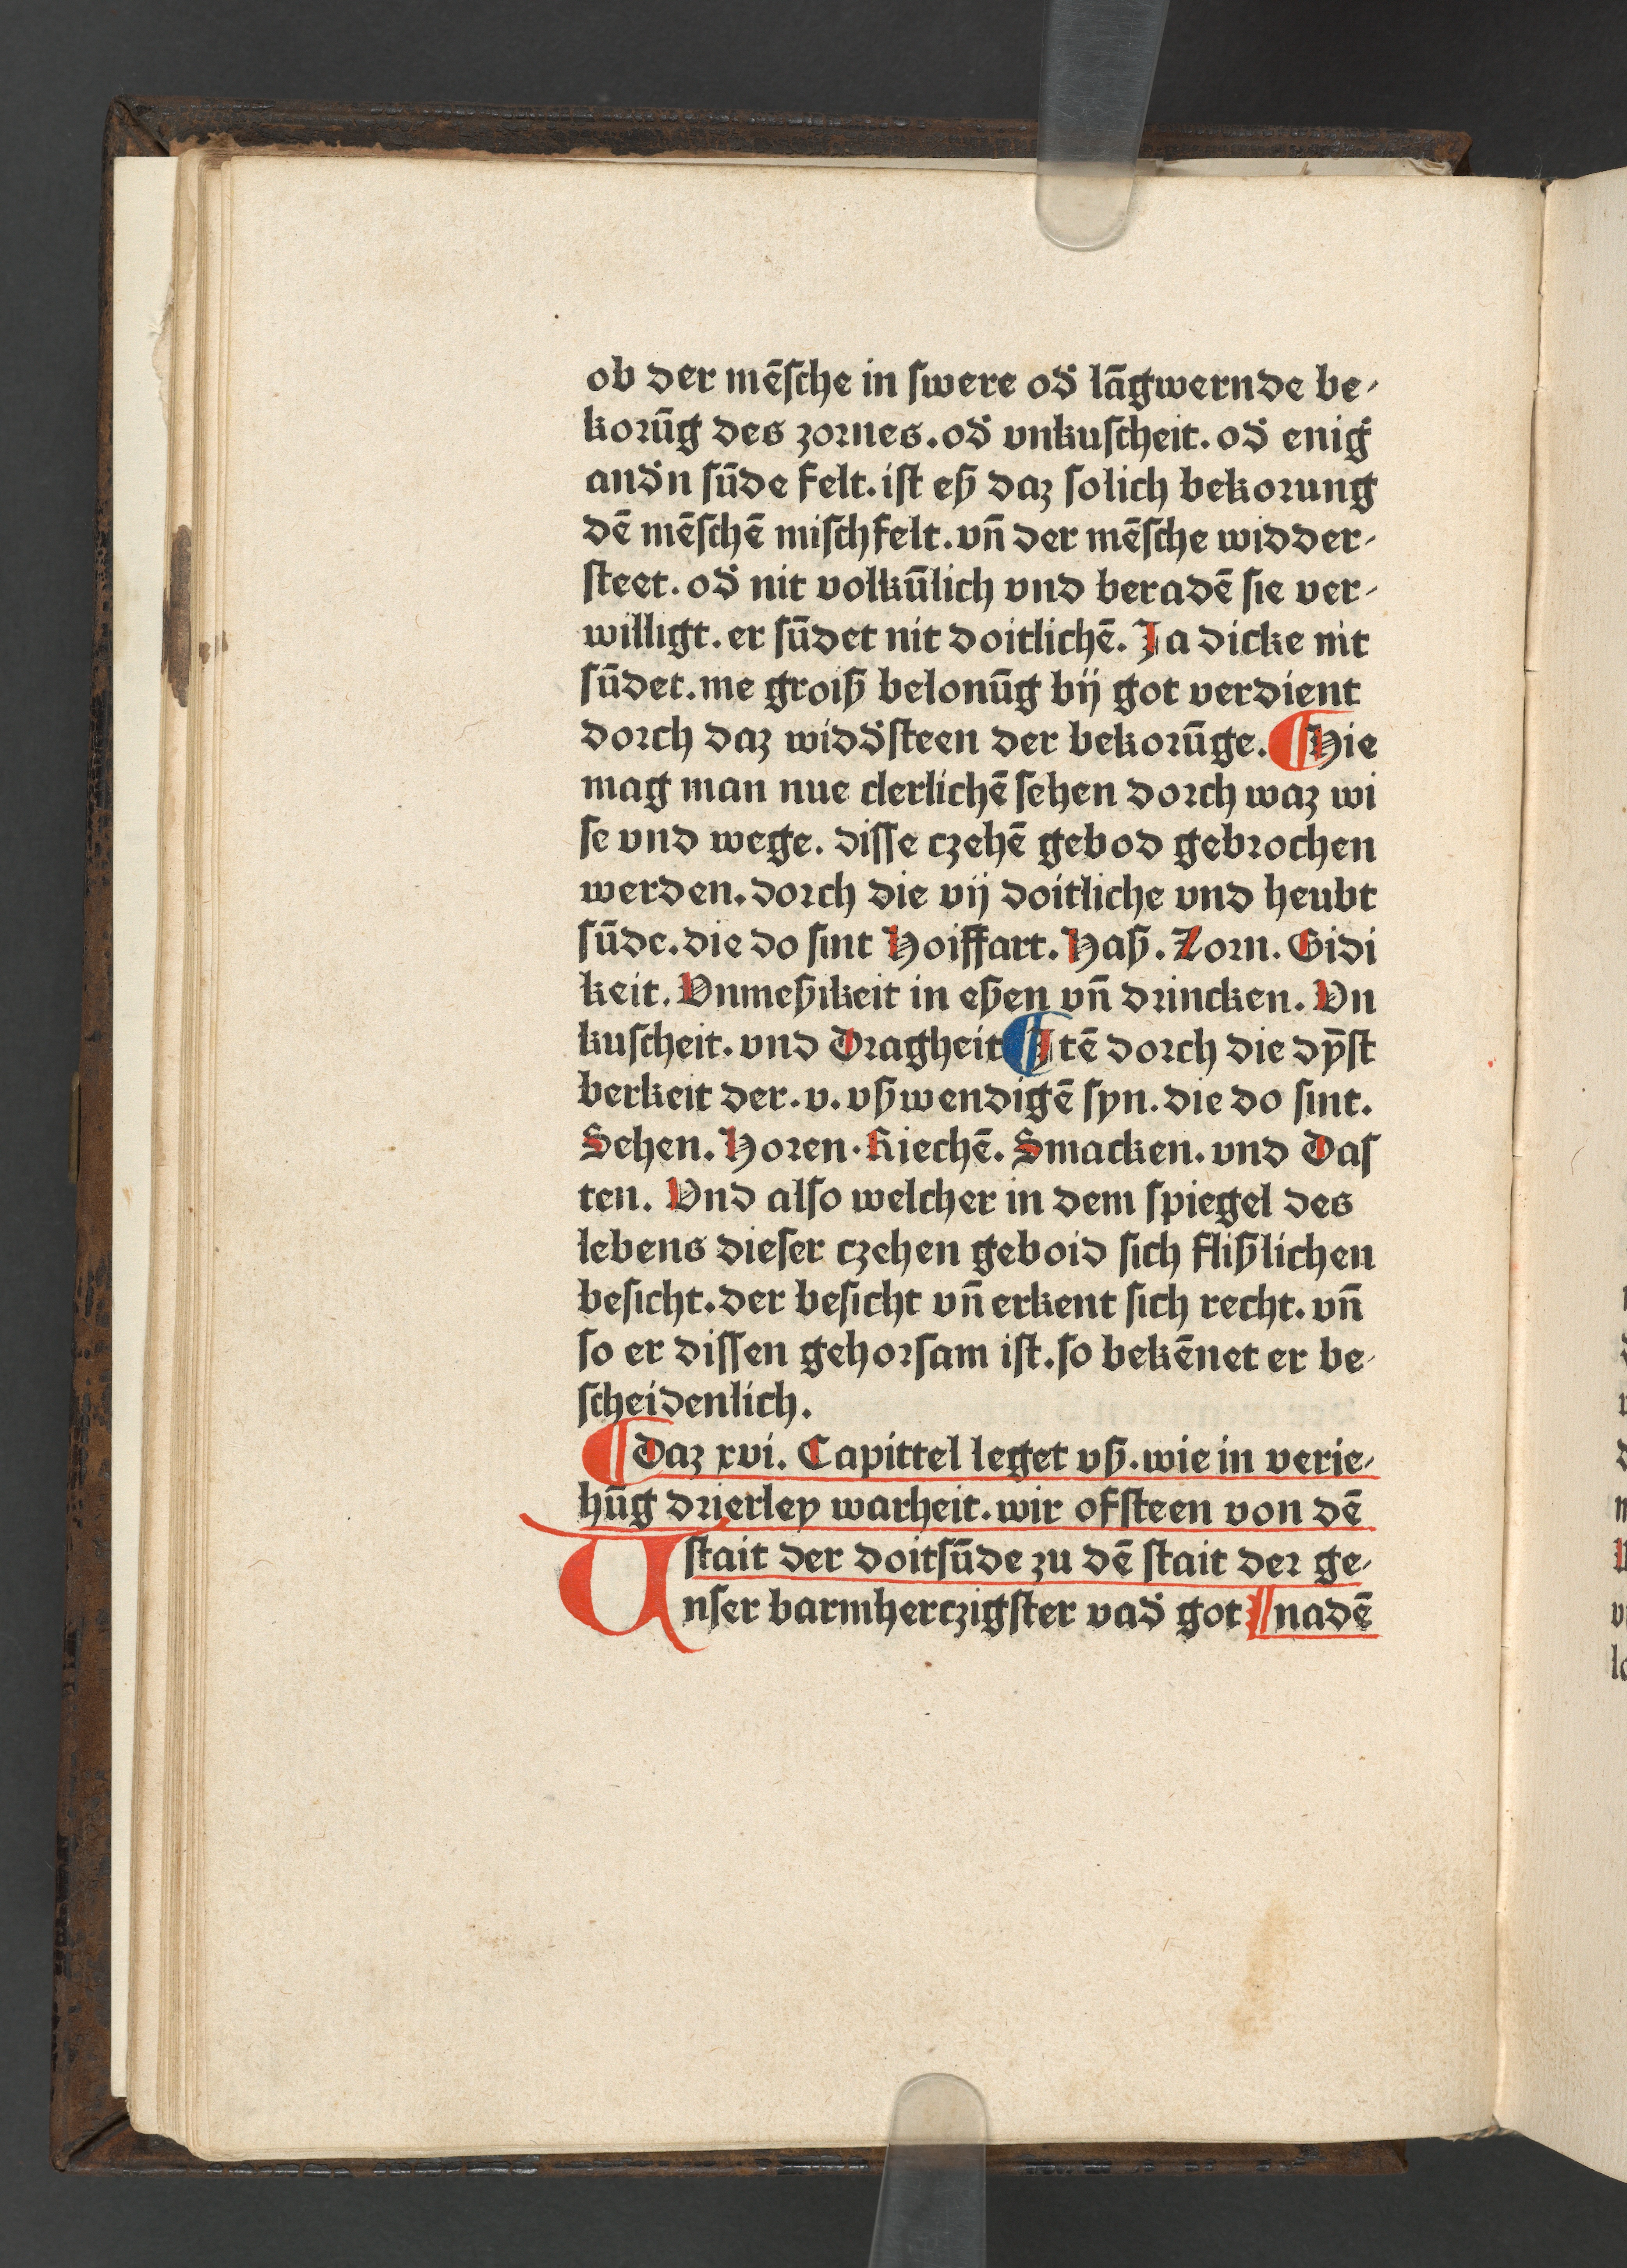 ob der mē­ſche in ſwere od̛ lāgwernde be⸗
korūg des zornes. od̛ vnkuſcheit. od̛ enig̛
and̛n ſūde felt. iſt eß daz ſolich bekorung
dē mēſchē miſchfelt. vn̄ der mēſche widder⸗
ſteet. od̛ nit volkūlich vnd beradē ſie ver⸗
willigt. er ſūdet nit doitlichē. Ja dicke nit
ſūdet. me groiß belonūg bij got verdient
dorch daz widd̛ſteen der bekorūge. ¶ Hie
mag man nue clerlichē ſehen dorch waz wi
ſe vnd wege. diſſe czehē gebod gebrochen
werden. dorch die vij doitliche vnd heubt
ſūde. die do ſint Hoiffart. Haß. Zorn. Gidi
keit. Vnmeßikeit in eßen vn̄ drincken. Vn
kuſcheit. vnd Dragheit ¶ Itē dorch die dȳſt
berkeit der. v. vßwendigē ſyn. die do ſint.
Sehen. Horen. Riechē. Smacken. vnd Daſ
ten. Vnd alſo welcher in dem ſpiegel des
lebens dieſer czehen geboid ſich flißlichen
beſicht. der beſicht vn̄ erkent ſich recht. vn̄
ſo er diſſen gehorſam iſt. ſo bekēnet er be⸗
ſcheidenlich.
¶ Daz xvi. Capittel leget vß. wie in verie⸗
hūg drierley warheit. wir ofſteen von dē
ſtait der doitſūde zu dē ſtait der ge⸗
Unſer barmherczigſter vad̛ got nadē